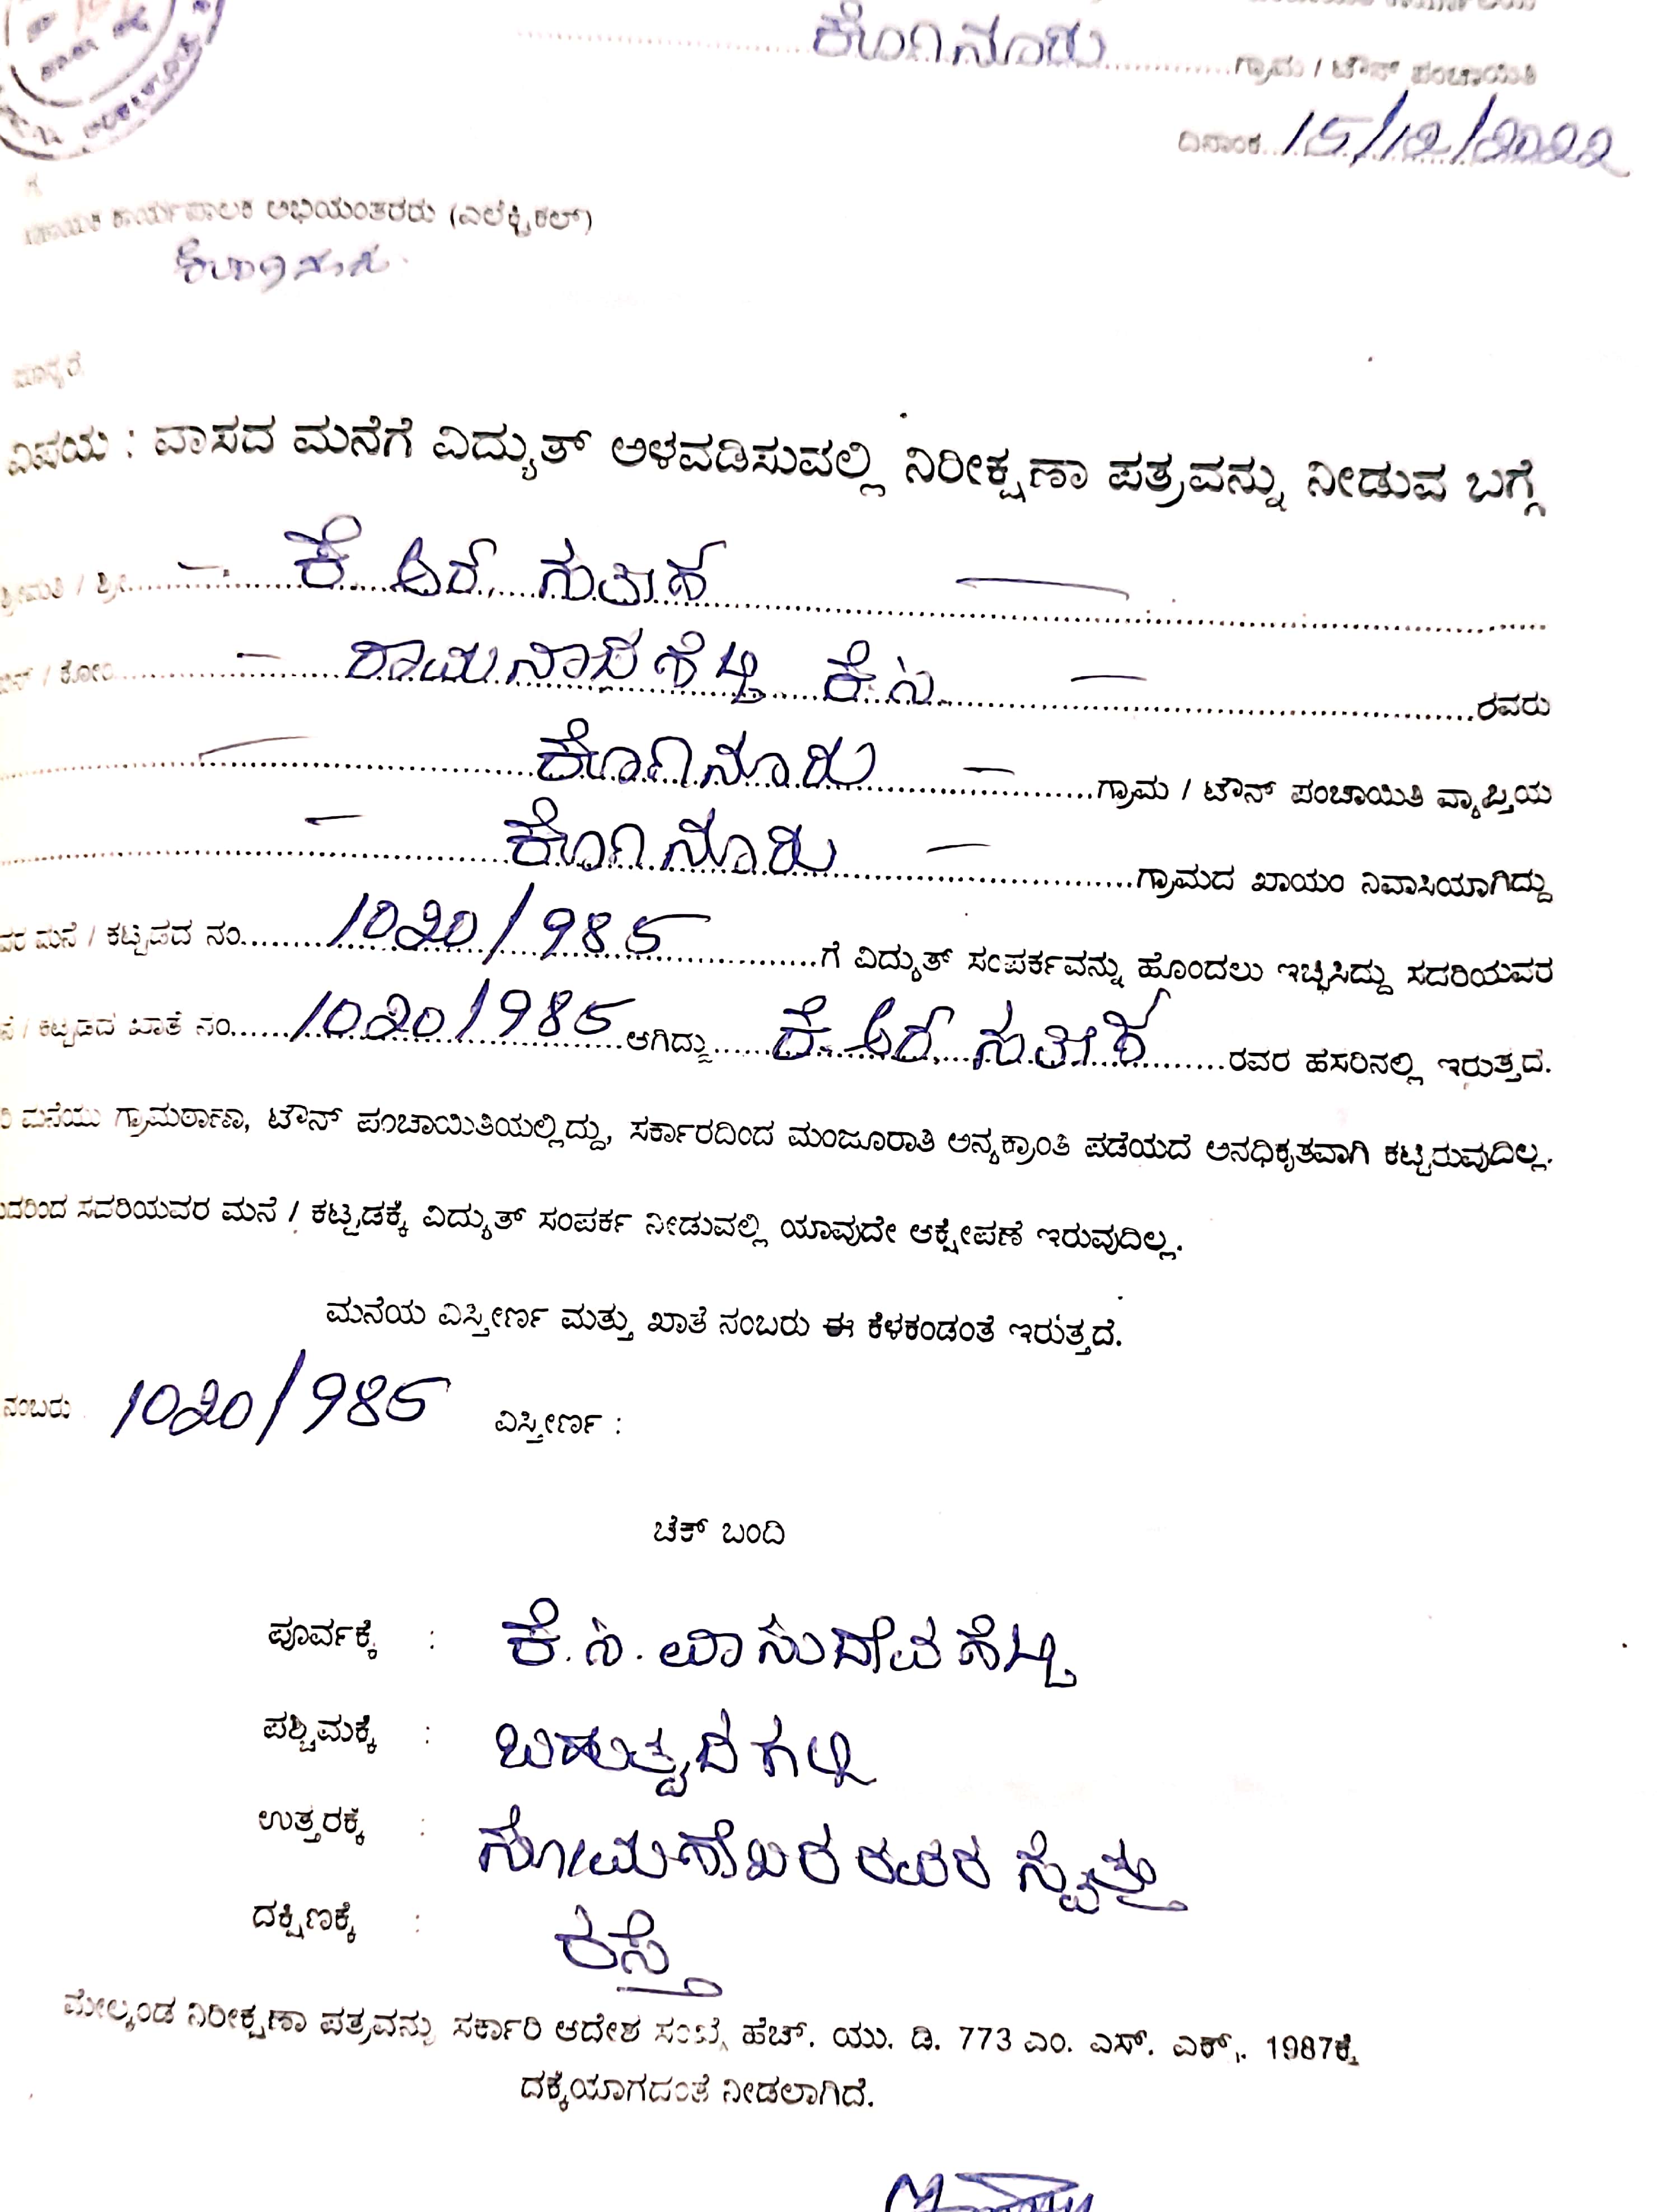 ಕೊಗಿನೂರು ಗ್ರಾಮ / ಟೌನ್ ಪಂಚಾಯಿತಿ
ದಿನಾಂಕ 15/12/2022
ಕಾರ್ಯಪಾಲಕ ಅಭಿಯಂತರರು (ಎಲೆಕ್ಟ್ರಿಕಲ್)
ಮಾನ್ಯರೆ
ವಿಷಯ : ವಾಸದ ಮನೆಗೆ ವಿದ್ಯುತ್ ಅಳವಡಿಸುವಲ್ಲಿ ನಿರೀಕ್ಷಣಾ ಪತ್ರವನ್ನು ನೀಡುವ ಬಗ್ಗೆ
ಶ್ರೀಮತಿ / ಶ್ರೀ ಕೆ ಆರ್
ಬಿನ್ / ಕೋಂ ಕೆ.ಸಿ. ರವರು
ಕೊಗಿನೂರು ಗ್ರಾಮ / ಟೌನ್ ಪಂಚಾಯಿತಿ ವ್ಯಾಪ್ತಿಯ
ಕೊಗಿನೂರು ಗ್ರಾಮದ ಖಾಯಂ ನಿವಾಸಿಯಾಗಿದ್ದು
ವರ ಮನೆ / ಕಟ್ಟಡದ ನಂ. 1020/985 ಗೆ ವಿದ್ಯುತ್ ಸಂಪರ್ಕವನ್ನು ಹೊಂದಲು ಇಚ್ಛಿಸಿದ್ದು ಸದರಿಯವರ
ನೆ / ಕಟ್ಟಡದ ಖಾತೆ ನಂ. 1020/985 ಆಗಿದ್ದು ಕೆ ಆರ್ ರವರ ಹಸರಿನಲ್ಲಿ ಇರುತ್ತದೆ.
ರಿ ಮನೆಯು ಗ್ರಾಮಠಾಣಾ, ಟೌನ್ ಪಂಚಾಯಿತಿಯಲ್ಲಿದ್ದು, ಸರ್ಕಾರದಿಂದ ಮಂಜೂರಾತಿ ಅನ್ಯಕ್ರಾಂತಿ ಪಡೆಯದೆ ಅನಧಿಕೃತವಾಗಿ ಕಟ್ಟಿರುವುದಿಲ್ಲ.
ದರಿಂದ ಸದರಿಯವರ ಮನೆ / ಕಟ್ಟಡಕ್ಕೆ ವಿದ್ಯುತ್ ಸಂಪರ್ಕ ನೀಡುವಲ್ಲಿ ಯಾವುದೇ ಆಕ್ಷೇಪಣೆ ಇರುವುದಿಲ್ಲ.
ಮನೆಯ ವಿಸ್ತೀರ್ಣ ಮತ್ತು ಖಾತೆ ನಂಬರು ಈ ಕೆಳಕಂಡಂತೆ ಇರುತ್ತದೆ.
ನಂಬರು 1020/985 ವಿಸ್ತೀರ್ಣ :
ಚೆಕ್ ಬಂದಿ
ಪೂರ್ವಕ್ಕೆ : ಕೆ.ಸಿ. ವಾಸುದೇವ ಶೆಟ್ಟಿ
ಪಶ್ಚಿಮಕ್ಕೆ :
ಉತ್ತರಕ್ಕೆ : ಸೋಮಶೇಖರ ರವರ ಸ್ವತ್ತು
ದಕ್ಷಿಣಕ್ಕೆ : ರಸ್ತೆ
ಮೇಲ್ಕಂಡ ನಿರೀಕ್ಷಣಾ ಪತ್ರವನ್ನು ಸರ್ಕಾರಿ ಆದೇಶ ಸಂಖ್ಯೆ ಹೆಚ್. ಯು. ಡಿ. 773 ಎಂ. ಎಸ್. ಎಕ್ಸ್. 1987ಕ್ಕೆ
ದಕ್ಕೆಯಾಗದಂತೆ ನೀಡಲಾಗಿದೆ.